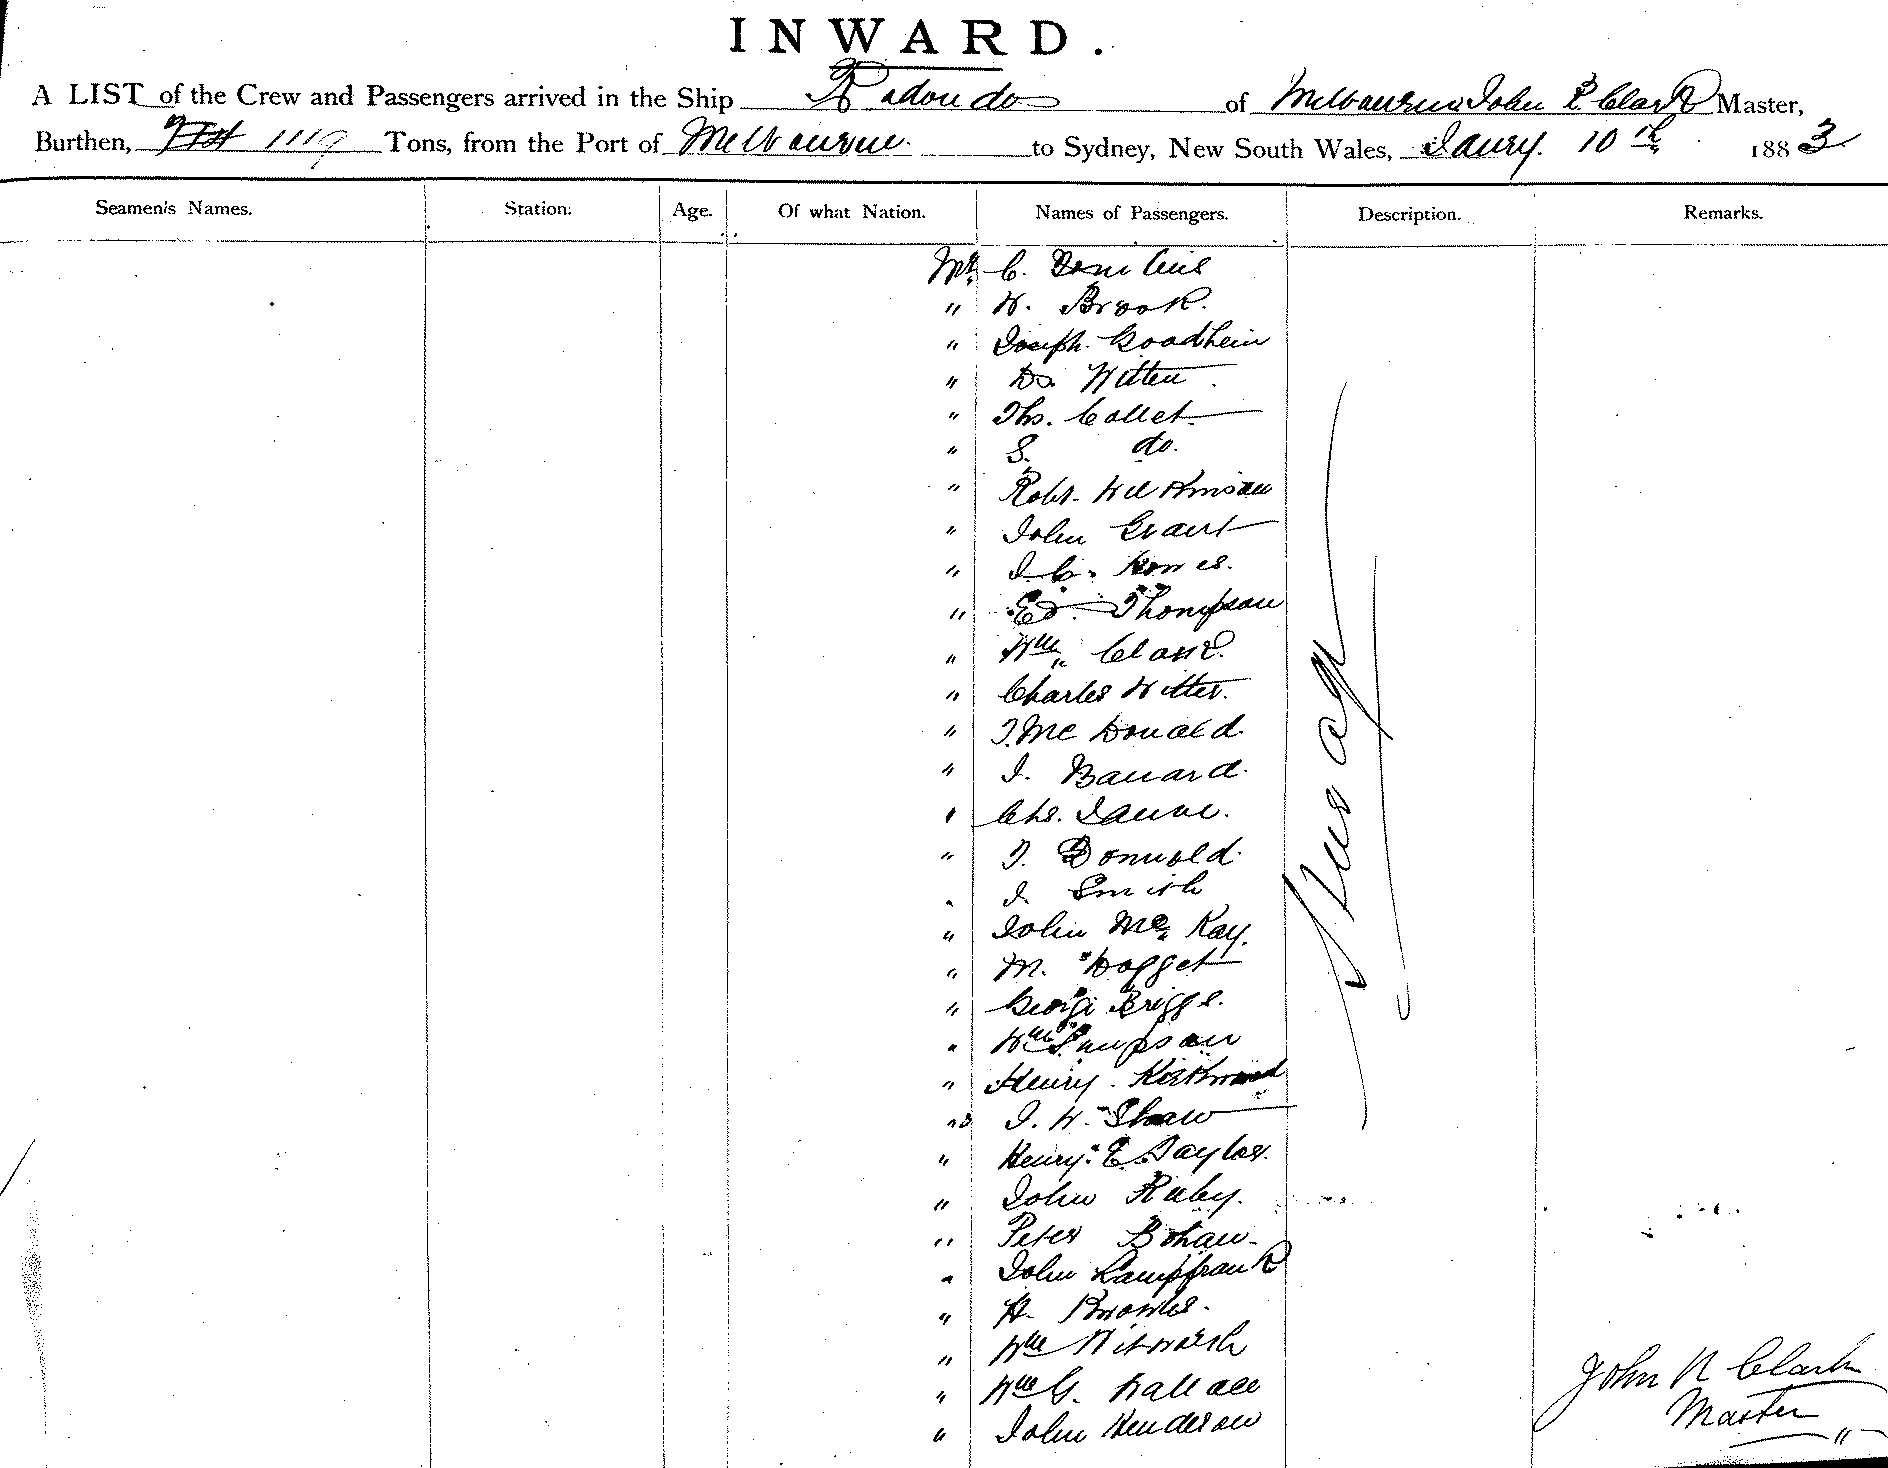 INWARD.
A LIST of the Crew and Passengers arrived in the Ship Rodondo of Melbourne John R Clark Master,
Burthen, 1119 Tons, from the Port of Melbourne. to Sydney, New South Wales, Janry. 10th 1883
Seamen's Names. Station. Age. Of what Nation. Names of Passengers. Description. Remarks.
Mr. C.
" W. Brook.
" Joseph Goodhein
" Do. Witten
" Ths. Collet
" S. do.
" Robt. Wilkinson
" John Grant
" J. C. Homes.
" Ed. Thompson
" Wm. Clark.
" Charles Witter.
" J. McDonald.
" J. Banard.
" Chs.
" J. Donnold.
" J. Smith
" John Mc. Kay.
" M. Dogget
" George Briggs.
" Wm Simpson
" Henry. Kirkwood
" J. W. Shaw
" Henry. E. Taylor.
" John Ruby.
" Peter Bohan.
" John Lampfrank
" H. Knowles.
" Wm Witworth
" Wm G. Wallace
" John Henderson
Steerage
John R Clark
Master